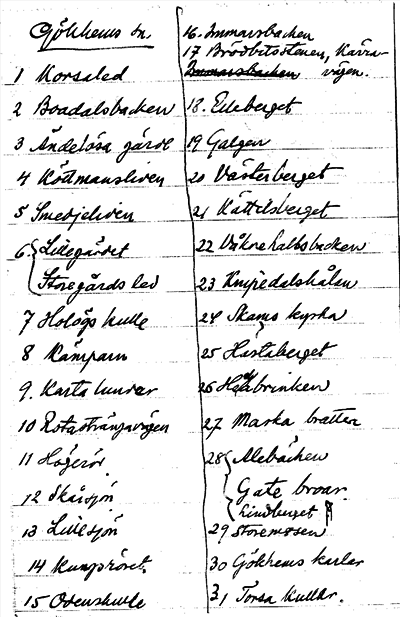 Gökhems sn.
1 Korsaled
2 Boadalsbacken
3 Ändelösa gärde
4 Rödmansliden
5 Smedjeliden
6. Lillegärdet
Storegårds led
7 Holögs kulle
8 Kämparn
9. Karta lunder
10
11 Högerör
12 Skårsjön
13 Lillesjön
14 Kumpröret.
15 Odenskulle
16. Immarsbacken
17 Brödbitsstenen, Kärra-
Immarsbacken vägen.
18. Elleberget
19 Galgen
20 Västerberget
21 Kättilsberget
22
23 Knipedalshålan
24 Skams kyrka
25 Hastaberget
26 brinken
27 Marka bratten
28 Alebäcken
Gate broar
Lindberget
29 Storemossen
30 Gökhems karlar
31 Torsa kullar.